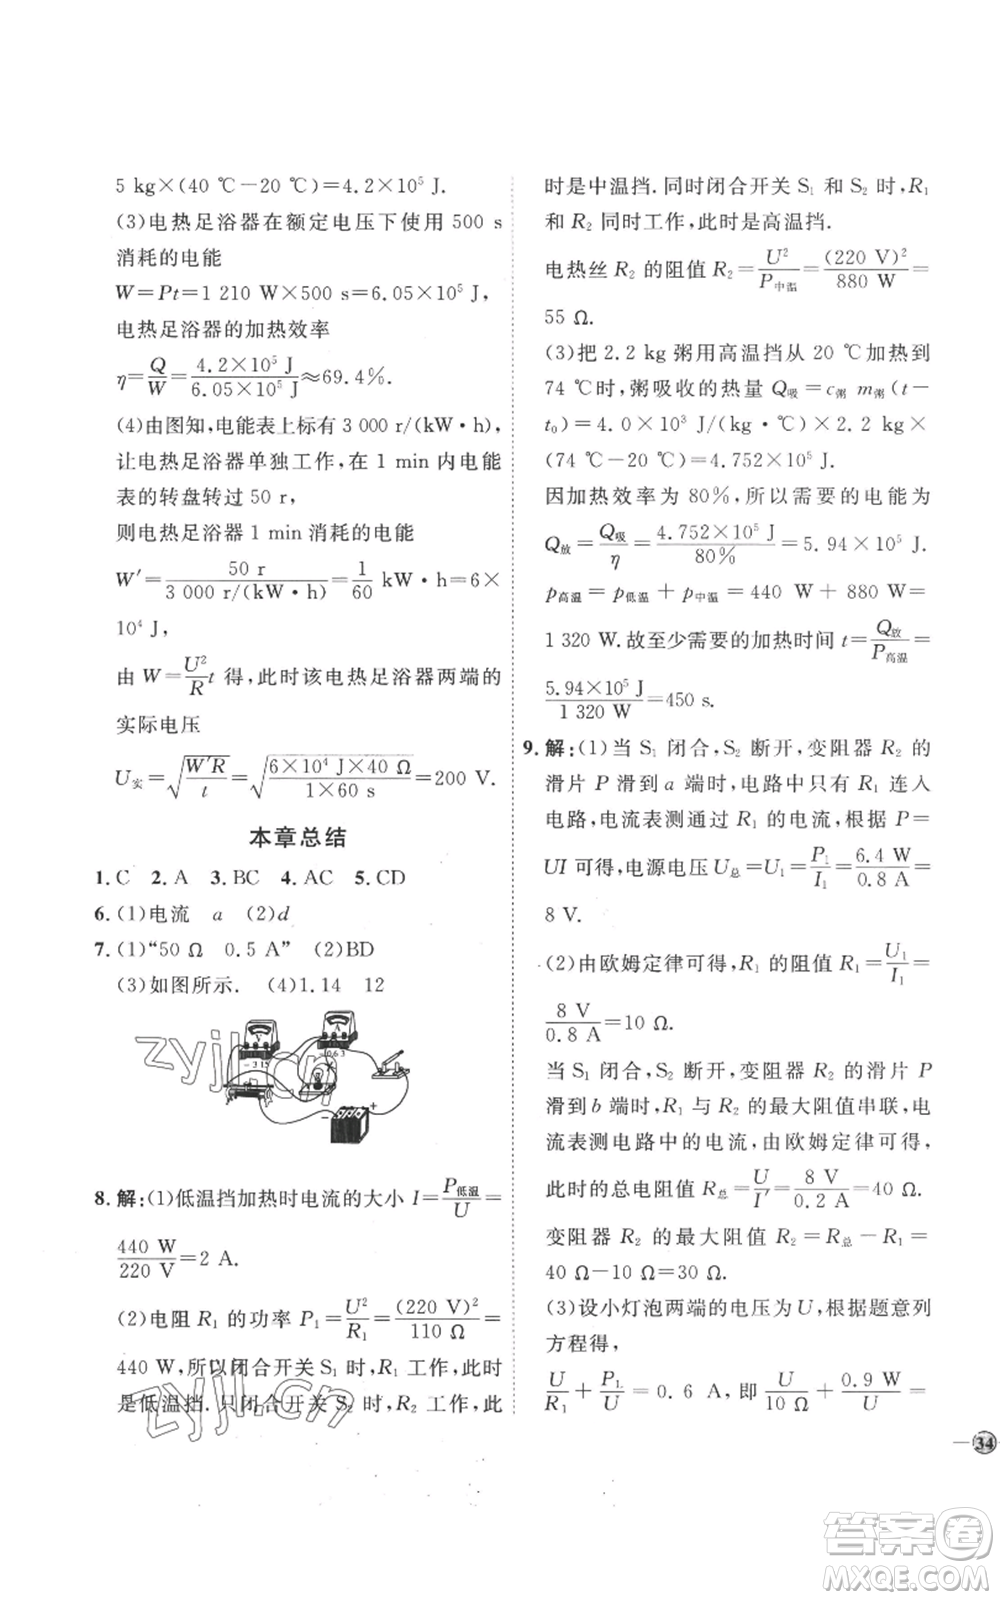 5 kg×(40 ℃－20 ℃)=4.2×10⁵ J.
(3)电热足浴器在额定电压下使用 500 s
消耗的电能
W=Pt=1 210 W×500 s=6.05×10⁵ J,
电热足浴器的加热效率
η=Q/W=4.2×10⁵ J/6.05×10⁵ J≈69.4%.
(4)由图知,电能表上标有 3 000 r/(kW·h),
让电热足浴器单独工作,在 1 min 内电能
表的转盘转过 50 r,
则电热足浴器 1 min 消耗的电能
W′=50 r/3 000 r/(kW·h)=1/60 kW·h=6×
10⁴ J,
由 W=U²/R t 得,此时该电热足浴器两端的
实际电压
U实=√(W′R/t)=√(6×10⁴ J×40 Ω/1×60 s)=200 V.
本章总结
1. C 2. A 3. BC 4. AC 5. CD
6. (1)电流 a (2)d
7. (1)“50 Ω 0.5 A” (2)BD
(3)如图所示. (4)1.14 12
V
A
－3 15
－0.6 3
－ +
zyjl.cn
8. 解:(1)低温挡加热时电流的大小 I=P低温/U=
440 W/220 V=2 A.
(2)电阻 R₁ 的功率 P₁=U²/R₁=(220 V)²/110 Ω=
440 W,所以闭合开关 S₁ 时,R₁ 工作,此时
是低温挡.只闭合开关 S₂ 时,R₂ 工作,此
zyjl.cn
时是中温挡.同时闭合开关 S₁ 和 S₂ 时,R₁
和 R₂ 同时工作,此时是高温挡.
电热丝 R₂ 的阻值 R₂=U²/P中温=(220 V)²/880 W=
55 Ω.
(3)把 2.2 kg 粥用高温挡从 20 ℃加热到
74 ℃时,粥吸收的热量 Q吸=c粥 m粥(t－
t₀)=4.0×10³ J/(kg·℃)×2.2 kg×
(74 ℃－20 ℃)=4.752×10⁵ J.
因加热效率为 80%,所以需要的电能为
Q放=Q吸/η=4.752×10⁵ J/80%=5.94×10⁵ J.
p高温=p低温+p中温=440 W+880 W=
1 320 W.故至少需要的加热时间 t=Q放/P高温=
5.94×10⁵ J/1 320 W=450 s.
9. 解:(1)当 S₁ 闭合,S₂ 断开,变阻器 R₂ 的
滑片 P 滑到 a 端时,电路中只有 R₁ 连入
电路,电流表测通过 R₁ 的电流,根据 P=
UI 可得,电源电压 U总=U₁=P₁/I₁=6.4 W/0.8 A=
8 V.
(2)由欧姆定律可得,R₁ 的阻值 R₁=U₁/I₁=
8 V/0.8 A=10 Ω.
当 S₁ 闭合,S₂ 断开,变阻器 R₂ 的滑片 P
滑到 b 端时,R₁ 与 R₂ 的最大阻值串联,电
流表测电路中的电流,由欧姆定律可得,
此时的总电阻值 R总=U/I′=8 V/0.2 A=40 Ω.
变阻器 R₂ 的最大阻值 R₂=R总－R₁=
40 Ω－10 Ω=30 Ω.
(3)设小灯泡两端的电压为 U,根据题意列
方程得,
U/R₁+P₁/U=0.6 A,即U/10 Ω+0.9 W/U=
—34
答案卷
MXQE.COM